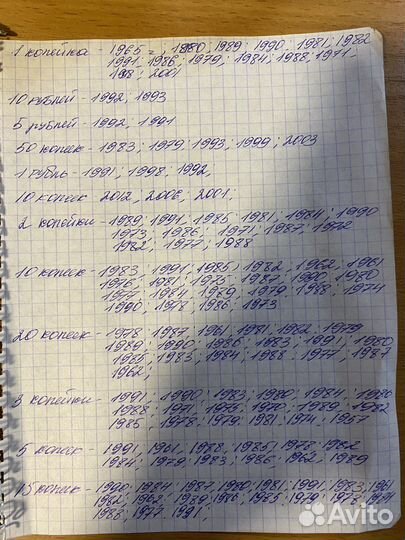 1 копейка - 1965 г, 1980; 1989; 1990; 1981; 1982
1991; 1986; 1979; 1984; 1988; 1971;
2001
10 рублей - 1992; 1993
5 рублей - 1992, 1991
50 копеек - 1983; 1979; 1993; 1999; 2003
1 рубль - 1991, 1998; 1992;
10 копеек 2012, 2006; 2001;
2 копейки - 1989; 1991, 1985 1981, 1984; 1990
1973, 1986; 1971; 1987; 1972
1982, 1977; 1988
10 копеек - 1983, 1991, 1985; 1982, 1962, 1961
1976, 1981; 1975; 1987; 1980
1977, 1984, 1989, 1979. 1988, 1974
1990, 1978, 1986, 1973
20 копеек - 1978; 1987, 1961, 1981; 1982. 1979
1989; 1990; 1986; 1983; 1991; 1980
1985; 1983; 1984; 1988. 1977; 1987
1962;
3 копейки - 1991; 1990; 1983; 1980; 1984; 1986
1988, 1971; 1975; 1970; 1989; 1982
1985; 1978, 1979, 1981; 1974; 1957
5 копеек - 1991, 1961, 1988, 1985, 1978; 1982
1984; 1979; 1983; 1986, 1962, 1989
15 копеек - 1990, 1984, 1987, 1980, 1981; 1991; 1983, 1961
1982, 1962, 1989, 1986, 1985; 1979; 1978,
1988, 1977, 1991;
Avito